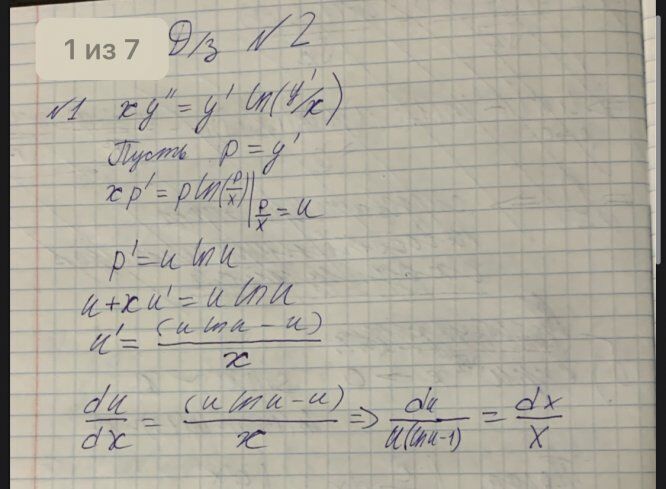 1 из 7
Д/з №2
№1 xy'' = y' ln(y'/x)
Пусть p = y'
xp' = p ln(p/x) | p/x = u
p' = u ln u
u + xu' = u ln u
u' = (u ln u - u) / x
du/dx = (u ln u - u) / x => du / u(ln u - 1) = dx/x